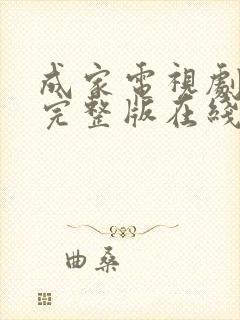 成家電視劇
完整版在綫
曲桑